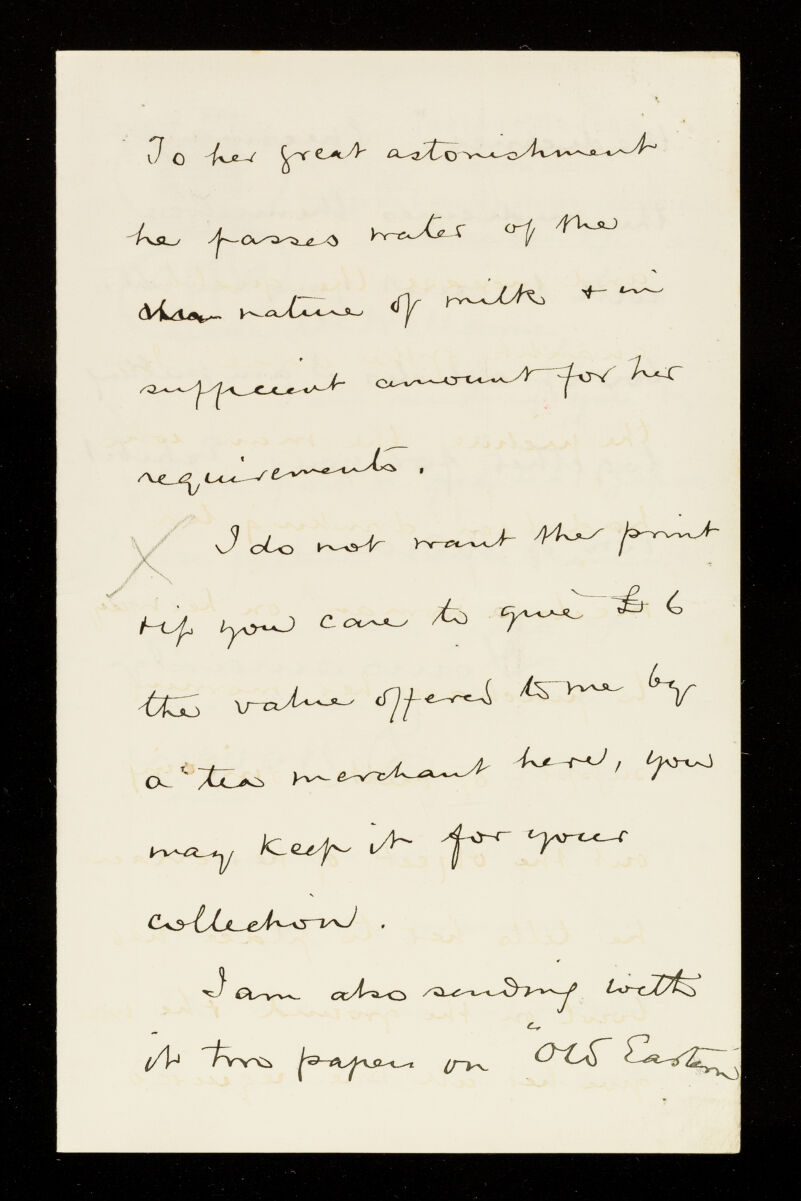 To her great astonishment
he passes water of the
nature of milk & in
sufficient amount for her
requirements.
I do not want the print
& if you care to give £6
the value offered to me by
a tea merchant here, you
may keep it for your
collection.
I am also sending with
it two papers on "Old Eastern